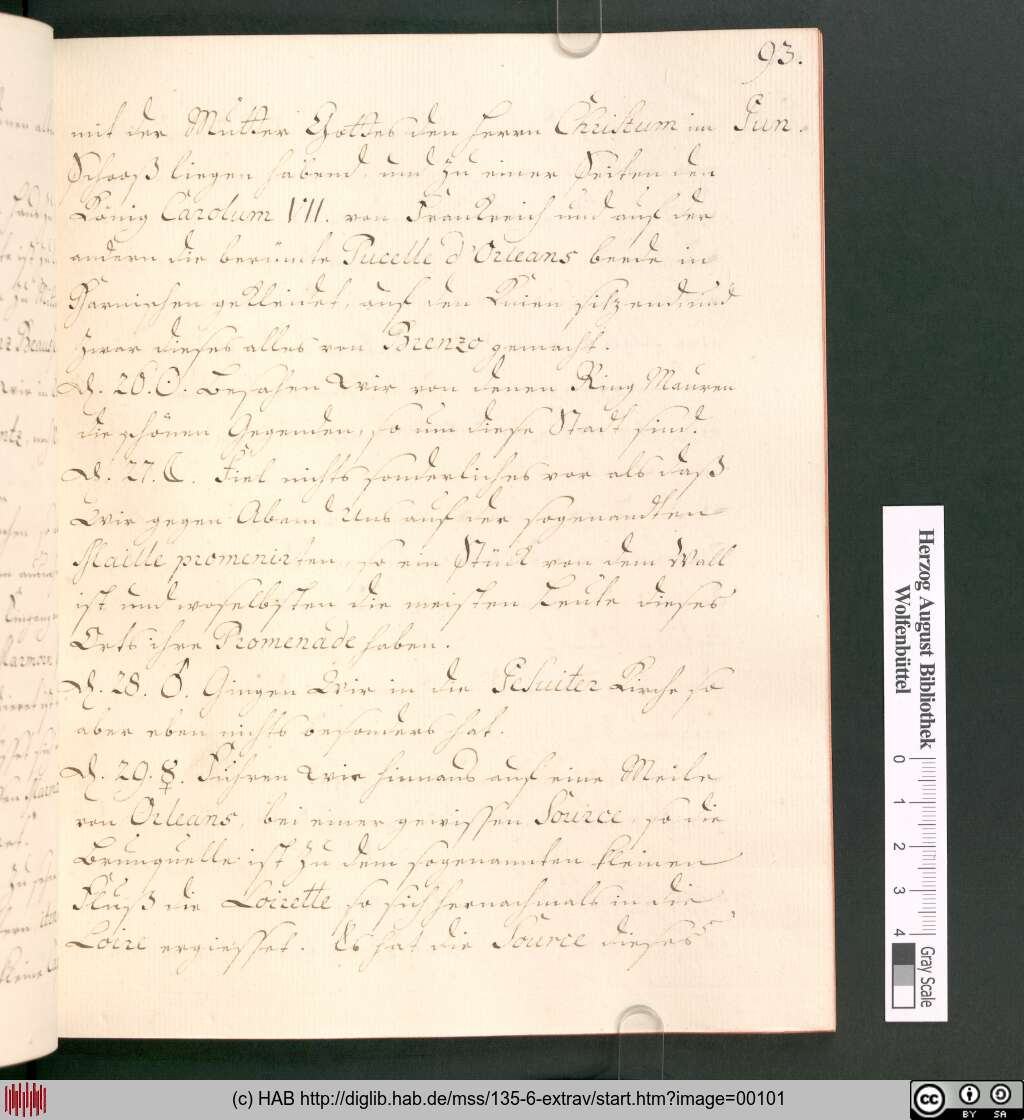 93.
mit der Mutter Gottes den Herrn Christum im Jun.
Schooß liegen habend, und zu einer Seiten den
König Carolum VII. von Franckreich und auf der
andern die berümte Pucelle d'Orleans beede in
Harnischen gekleidet, auf den Knien sitzend und
zwar dieses alles von Bronzo gemacht.
D. 26. ☉. Besahen Wir von denen Ring Mauren
die schönen Gegenden, so um diese Stadt sind.
D. 27. ☾. Fiel nichts sonderliches vor als daß
Wir gegen Abend Uns auf der sogenandten
Maille promenirten, so ein Stück von dem Wall
ist und woselbsten die meisten Leute dieses
Orts ihre Promenade haben.
D. 28. ♂. Gingen Wir in die Jesuiter Kirche so
aber eben nichts besonders hat.
D. 29. ☿. Führen Wir hinnaus auf eine Meile
von Orleans, bei einer gewissen Source, so die
Brunquelle ist zu dem sogenannten kleinen
Fluß die Loirette so sich hernachmals in die
Loire ergiesset. Es hat die Source dieses
Herzog August Bibliothek
Wolfenbüttel
0 1 2 3 4
Gray Scale
(c) HAB http://diglib.hab.de/mss/135-6-extrav/start.htm?image=00101
cc BY SA